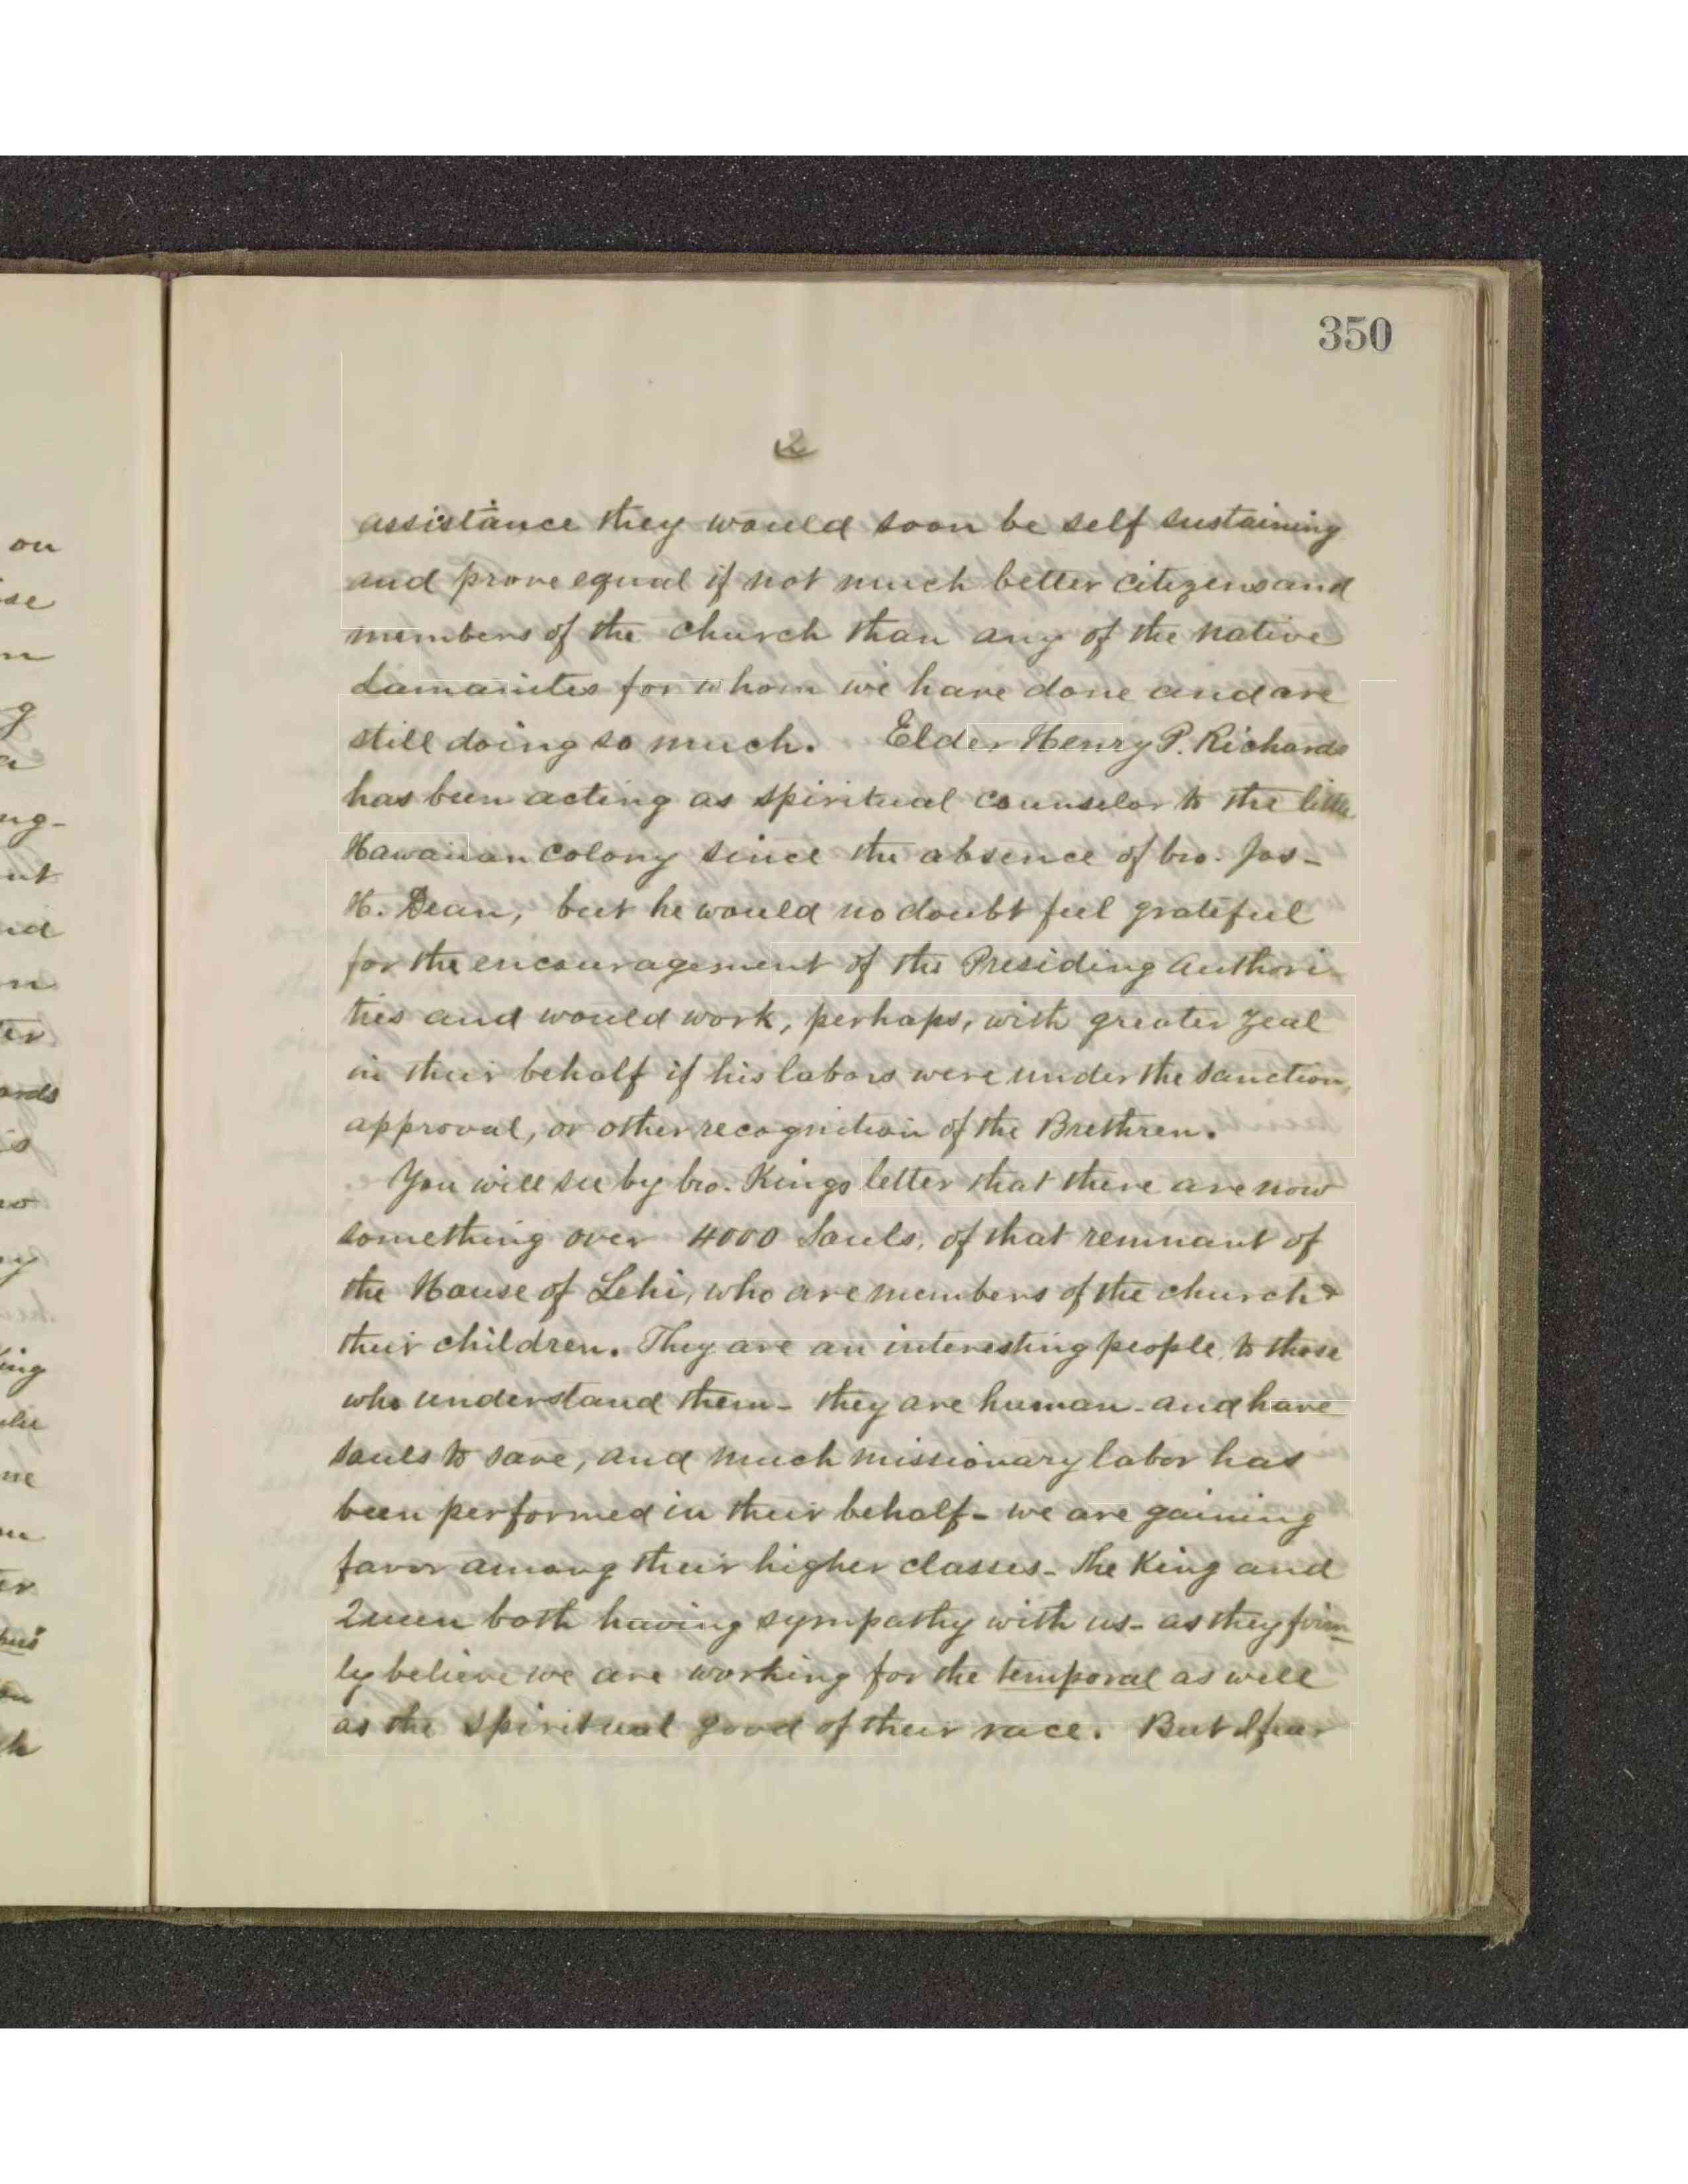 350
2
assistance they would soon be self sustaining
and prove equal if not much better citizens and
members of the church than any of the native
Lamanites for whom we have done and are
still doing so much. Elder Henry P. Richards
has been acting as spiritual counselor to the little
Hawaiian colony since the absence of bro. Jos-
H. Dean, but he would no doubt feel grateful
for the encouragement of the Presiding Authori-
ties and would work, perhaps, with greater zeal
in their behalf if his labors were under the sanction,
approval, or other recognition of the Brethren.
You will see by bro. Kings letter that there are now
something over 4000 Souls, of that remnant of
the House of Lehi, who are members of the church &
their children. They are an interesting people, to those
who understand them - they are human - and have
souls to save, and much missionary labor has
been performed in their behalf - we are gaining
favor among their higher classes - The King and
Queen both having sympathy with us - as they firm-
ly believe we are working for the temporal as well
as the spiritual good of their race. But I fear
on
g
ng-
ut
ter
ards
is
ny
ing
me
er